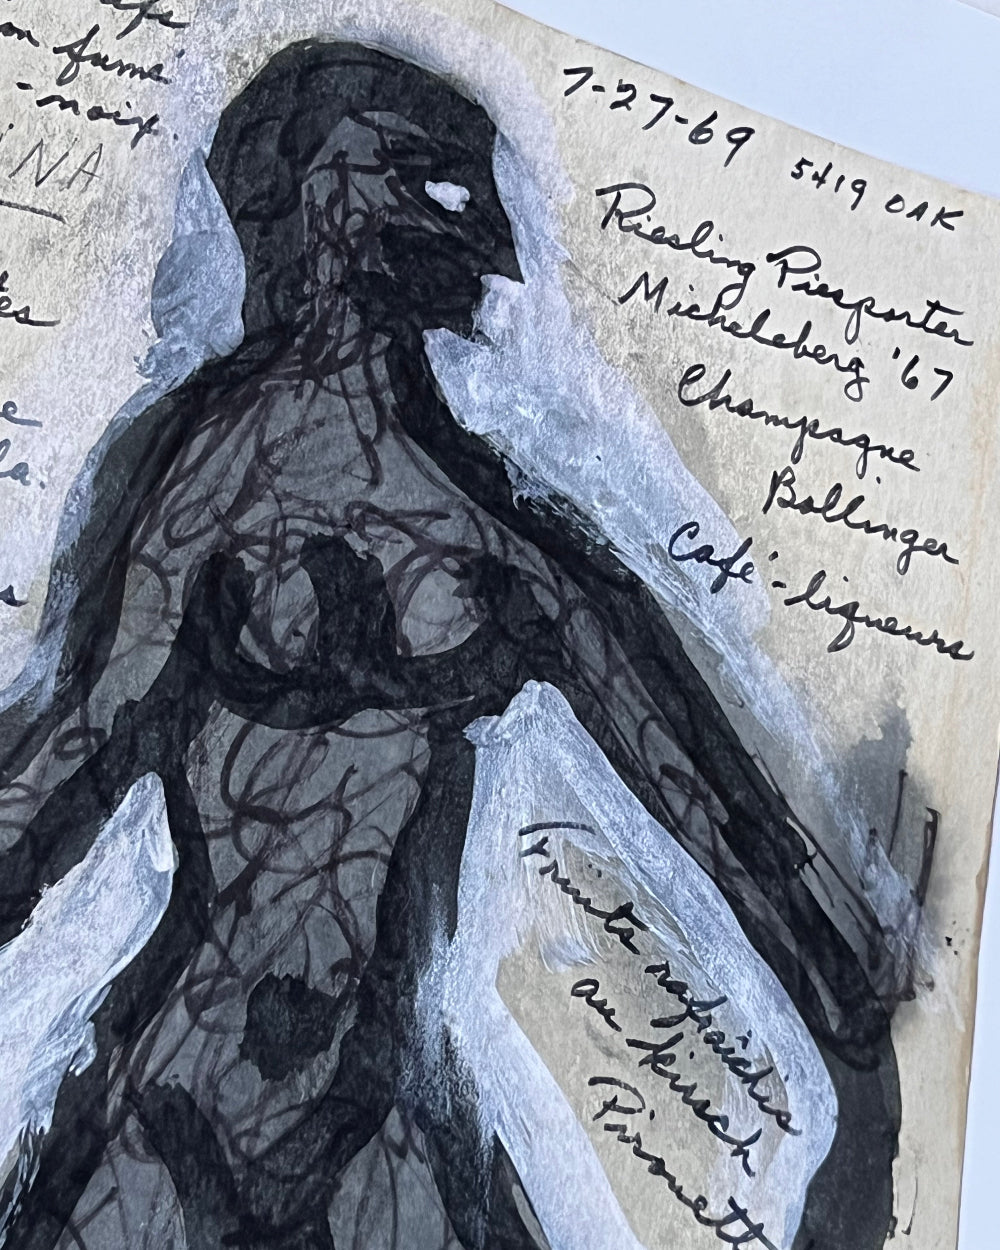 on fumé
-noix.
NA
7-27-69 5419 OAK
Riesling Piesporter
Michelsberg '67
Champagne
Bollinger
Café-liqueurs
Fruits rafraîchis
au kirsch
Pirouett